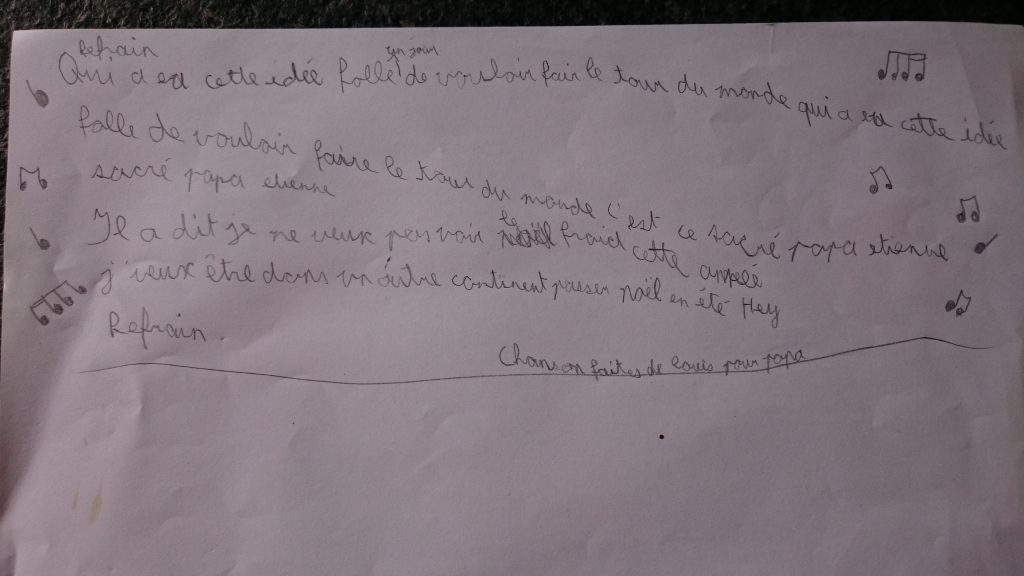 Refrain
Qui a eu cette idée folle un jour de vouloir fair le tour du monde qui a eu cette idée
folle de vouloir faire le tour du monde c'est ce sacré papa etienne
sacré papa etienne
Il a dit je ne veux pas voir le froid cette année
j'veux être dans un autre continent passer noël en été Hey
Refrain.
Chanson faites de louis pour papa